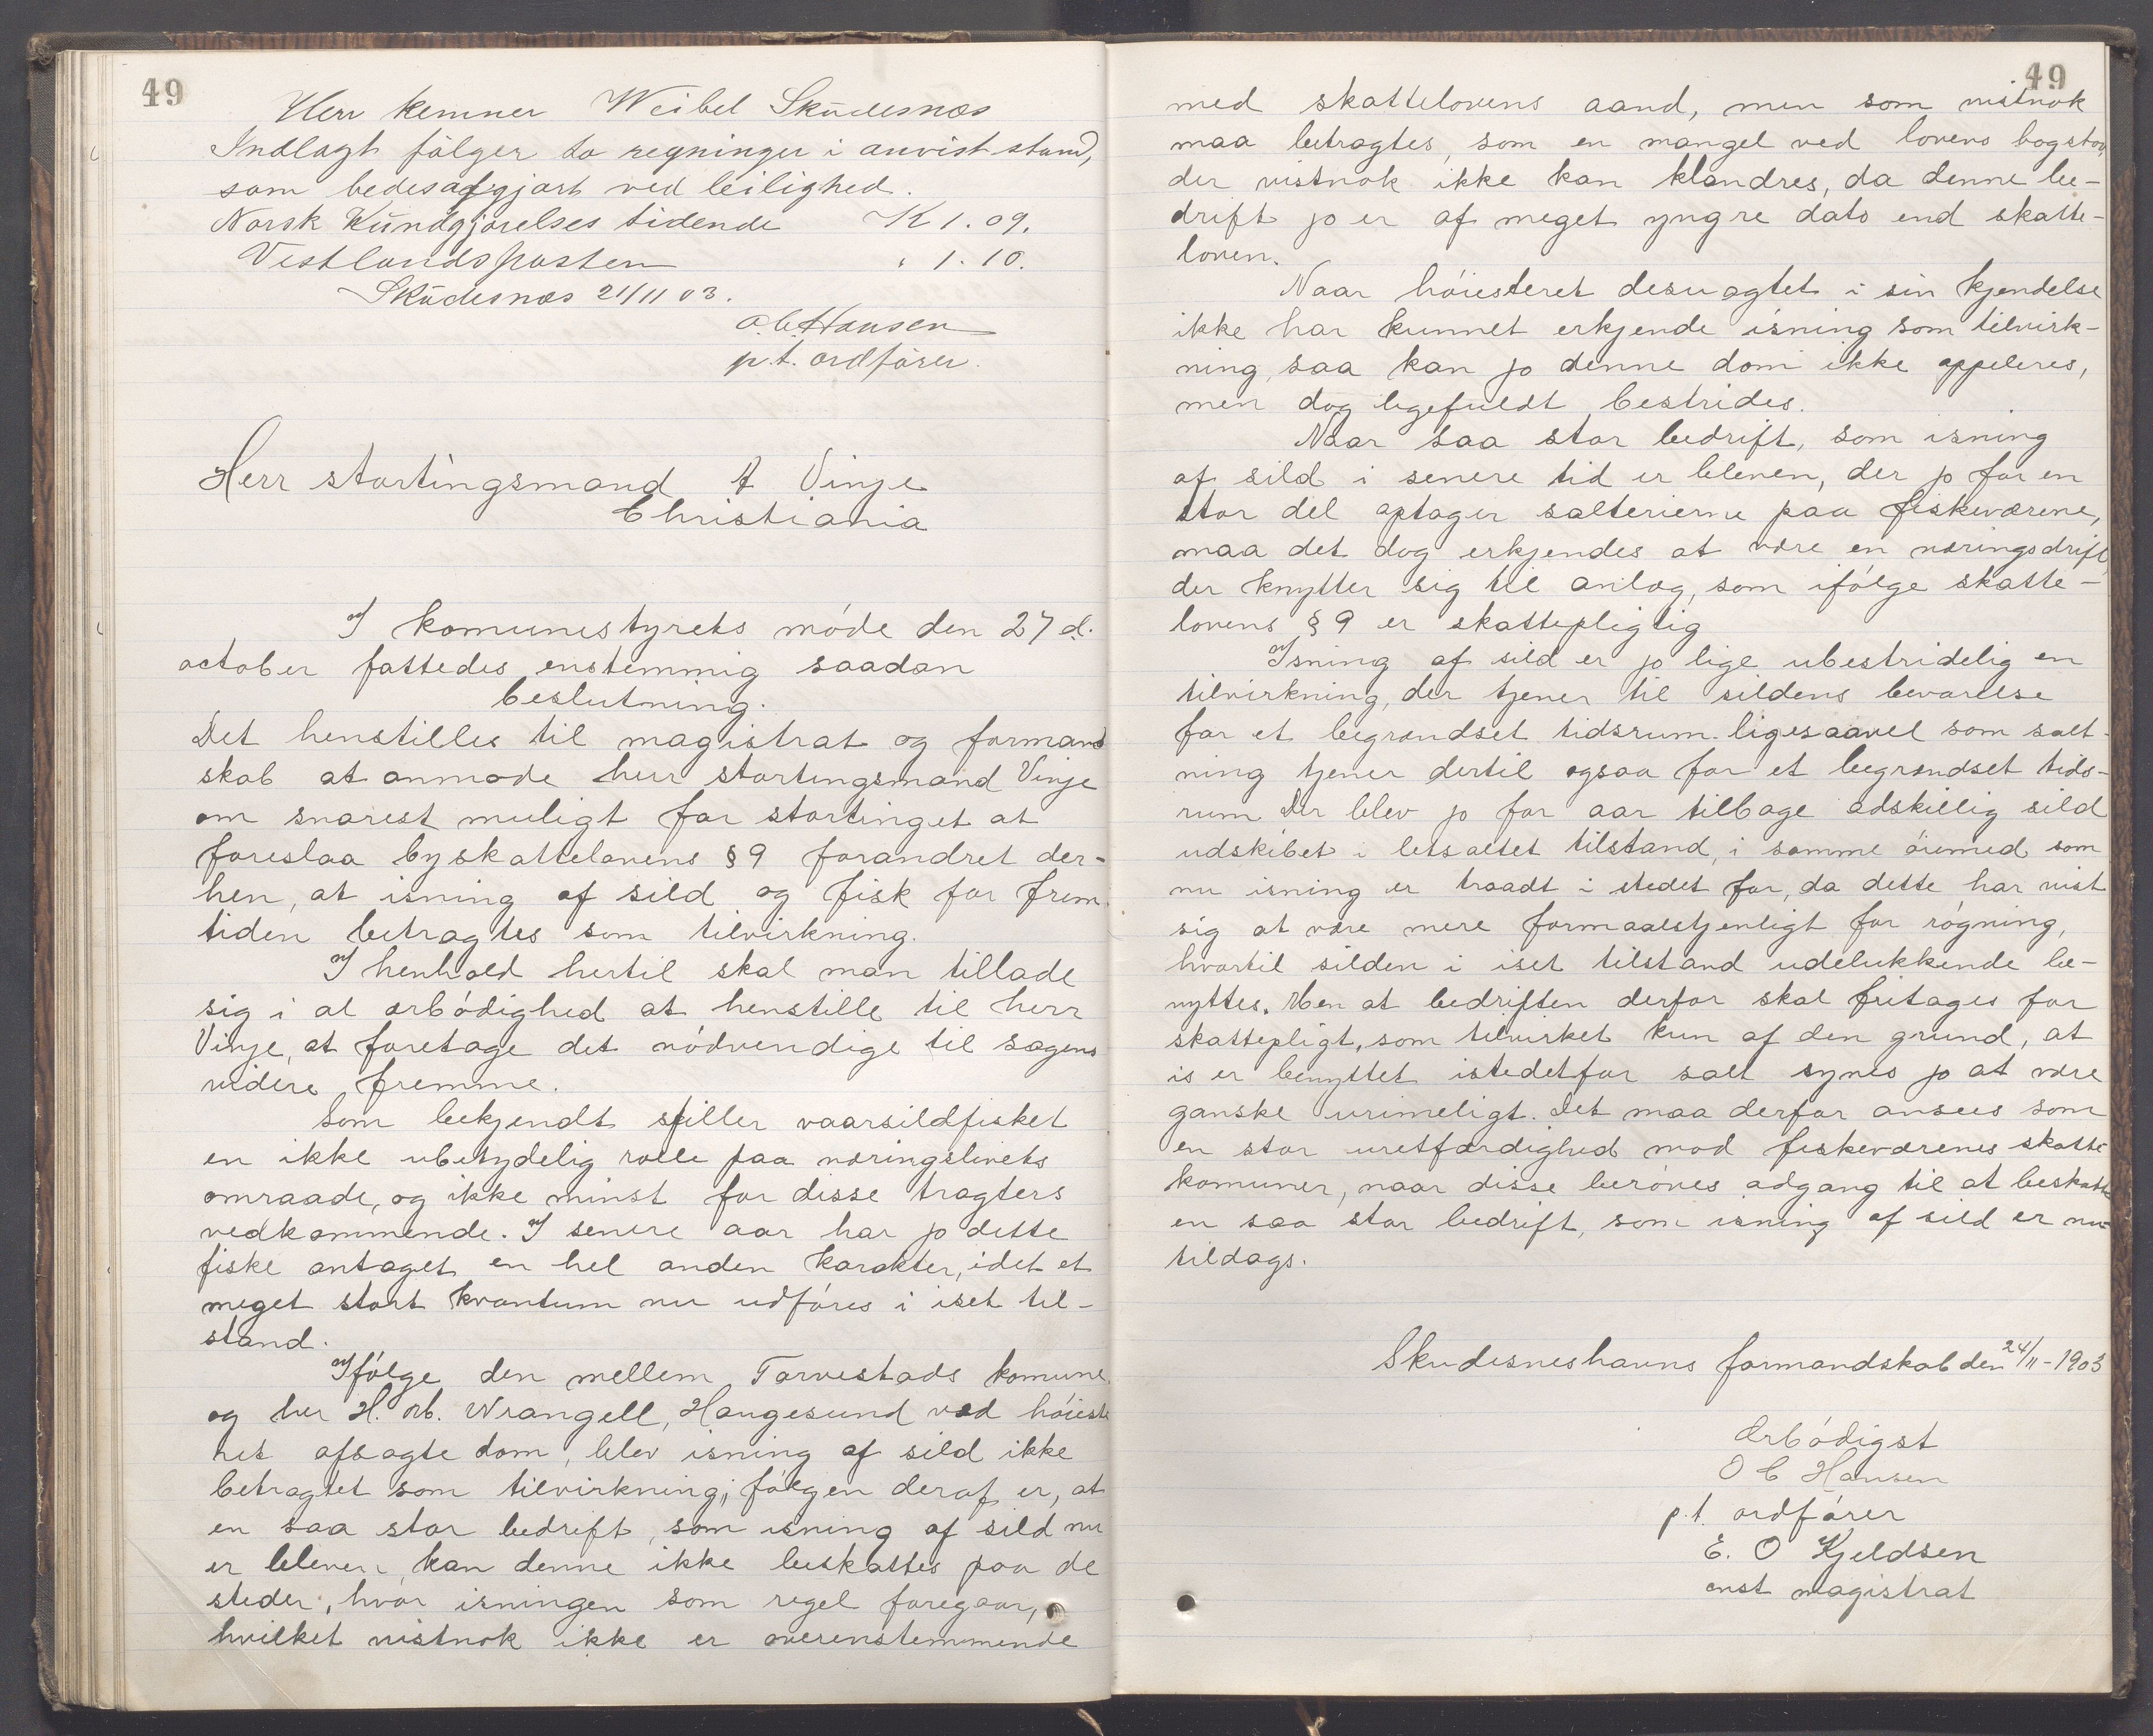 49
Herr kemner Weibel Skudesnæs
Indlagt fölger to regninger i anvist stand,
som bedes afgjort ved leilighed.
Norsk Kundgjörelses tidende Kr 1.09.
Vestlandsposten " 1.10.
Skudesnæs 21/11 03.
O.C. Hansen
p.t. ordförer.
Herr stortingsmand A Vinje
Christiania
I komunestyrets möde den 27 d.
october fattedes enstemmig saadan
beslutning.
Det henstilles til magistrat og formand
skab at anmode herr stortingsmand Vinje
om snarest muligt for stortinget at
foreslaa byskattelovens § 9 forandret der-
hen, at isning af sild og fisk for frem
tiden betragtes som tilvirkning.
I henhold hertil skal man tillade
sig i al ærbödighed at henstille til herr
Vinje, at foretage det nödvendige til sagens
videre fremme.
Som bekjendt spiller vaarsildfisket
en ikke ubetydelig rolle paa næringslivets
omraade, og ikke minst for disse tragters
vedkommende. I senere aar har jo dette
fiske antaget en hel anden karakter, idet et
meget stort kvantum nu udföres i iset til-
stand.
Ifölge den mellem Torvestads komune
og herr H. M. Wrangell, Haugesund ved höieste
ret afsagte dom, blev isning af sild ikke
betragtet som tilvirkning, fölgen deraf er, at
en saa stor bedrift, som isning af sild nu
er bleven, kan denne ikke beskattes paa de
steder, hvor isningen som regel foregaar,
hvilket vistnok ikke er overenstemmende
49
med skattelovens aand, men som vistnok
maa betragtes, som en mangel ved lovens bogstav,
der vistnok ikke kan klandres, da denne be-
drift jo er af meget yngre dato end skatte-
loven.
Naar höiesteret desuagtet i sin kjendelse
ikke har kunnet erkjende isning som tilvirk-
ning, saa kan jo denne dom ikke appeleres,
men dog ligefuldt bestrides.
Naar saa stor bedrift, som isning
af sild i senere tid er bleven, der jo for en
stor del optager salterierne paa fiskeværene,
maa det dog erkjendes at være en næringsdrift
der knytter sig til anlæg, som ifölge skatte-
lovens § 9 er skattepligtig
Isning af sild er jo lige ubestridelig en
tilvirkning, der tjener til sildens bevarelse
for et begrændset tidsrum. ligesaavel som salt-
ning tjener dertil ogsaa for et begrændset tids-
rum Der blev jo for aar tilbage adskillig sild
udskibet i letsaltet tilstand, i samme öiemed som
nu isning er traadt i stedet for, da dette har vist
sig at være mere formaalstjenligt for rögning,
hvortil silden i iset tilstand udelukkende be-
nyttes. Men at bedriften derfor skal fritages for
skattepligt, som tilvirket kun af den grund, at
is er benyttet istedetfor salt synes jo at være
ganske urimeligt. Det maa derfor ansees som
en stor uretfærdighed mod fiskeværenes skatte
komuner, naar disse beröves adgang til at beskatte
en saa stor bedrift, som isning af sild er nu
tildags.
Skudesneshavns formandskab den 24/11-1903
Ærbödigst
O C Hansen
p.t. ordförer
E. O Kjeldsen
const magistrat